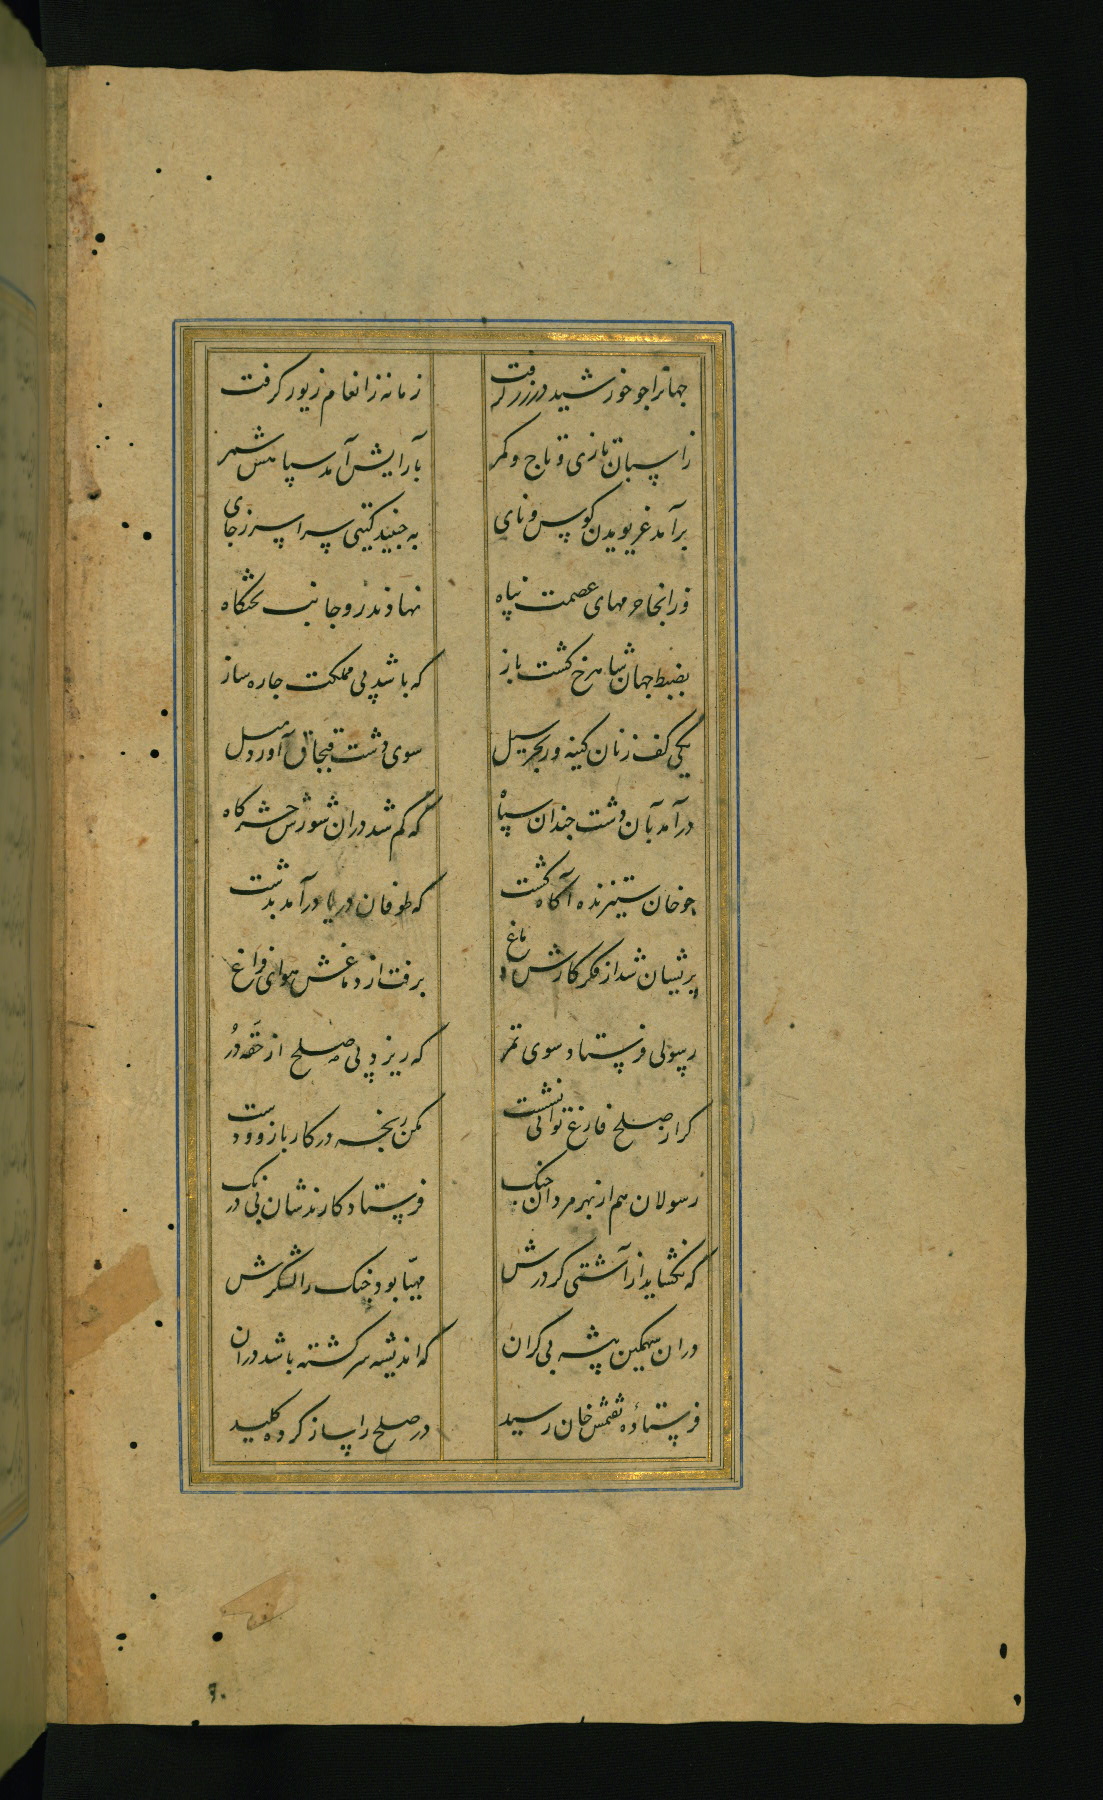 جهانرا جو خورشید در زر گرفت زمانه ز انعام زیور گرفت
ز اسپان تازی و تاج و کمر بآرایش آمد سپاهش شمر
برآمد غریویدن کوس و نای به جنبید کیتی سراسر ز جای
وز انجا حرمهای عصمت پناه نهادند رو جانب تختکاه
بضبط جهان شاهرخ کشت باز که باشد پی مملکت جاره ساز
یکی کف زنان کینه ور بحر سیل سوی دشت قبجاق آورد میل
درآمد بآن دشت جندان سپاه که کم شد دران شورش حشرکاه
جو خان ستیزنده آکاه کشت که طوفان دریا درآمد بدشت
پریشان شد از فکر کارش دماغ برفت از دماغش هوای فراغ
رسولی فرستاد سوی تمر که ریزد پی صلح از حقه دُر
کز ار صلح فارغ توانی نشست مکن رنجه در کار بازو و دست
رسولان هم از بهر مردان جنک فرستاد کارندشان بی درنک
که نکشاید از آشتی کر درش مهیّا بود جنک را لشکرش
دران سهمکین پیشه بی کران که اندیشه سرکشته باشد دران
فرستادهٔ تقمش خان رسید در صلح را ساز کرده کلید